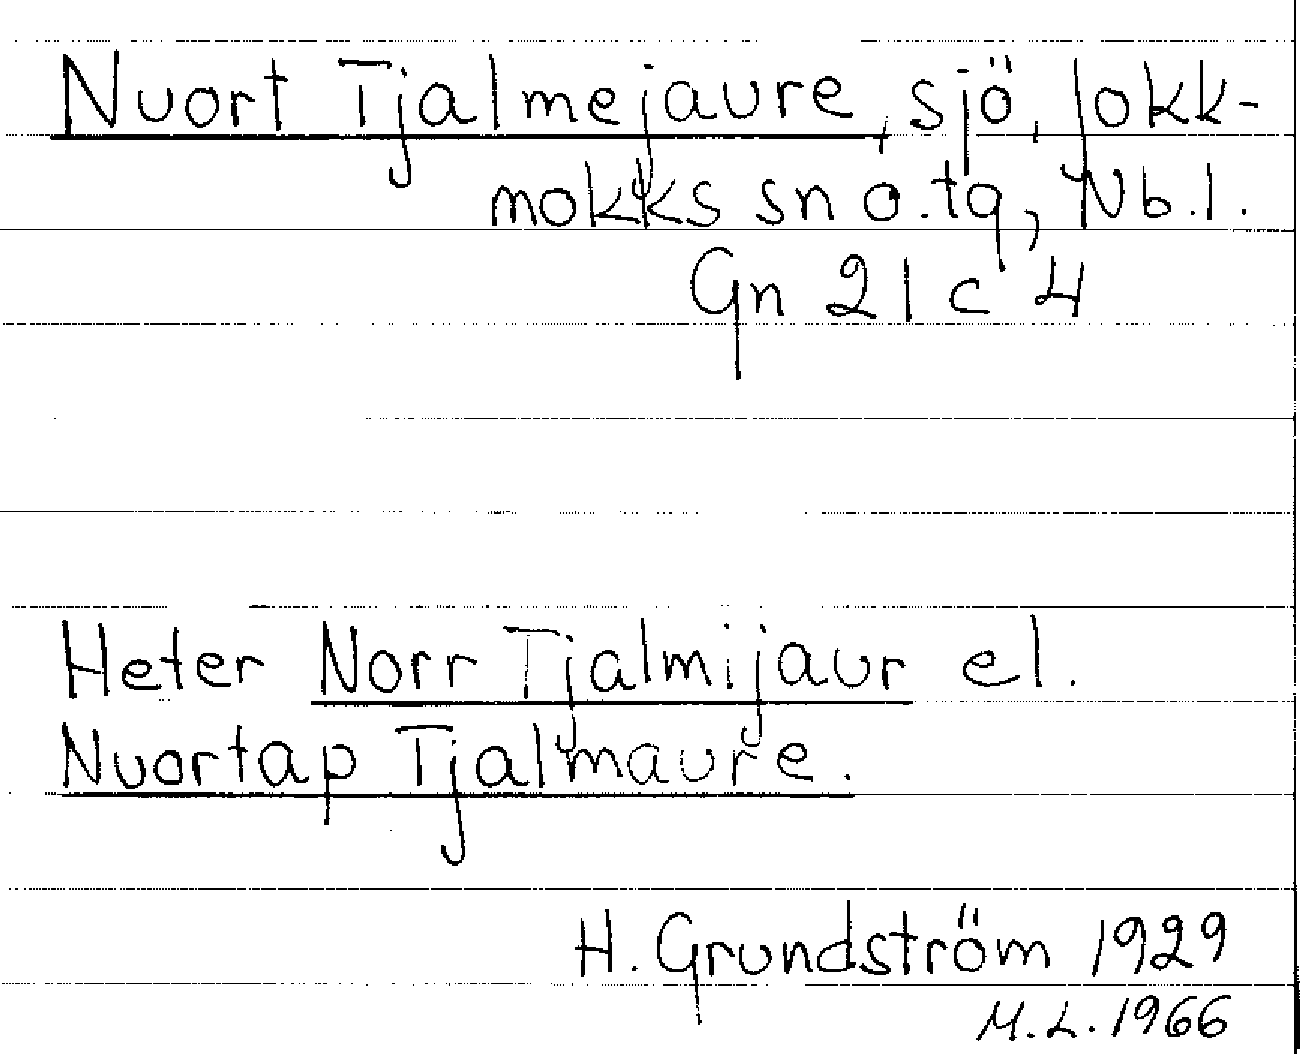 Nuort Tjalmejaure, sjö, Jokk-
mokks sn o. tg, Nb. l.
Gn 21 c 4
Heter Norr Tjalmijaur el.
Nuortap Tjalmaure.
H. Grundström 1929
M. L. 1966